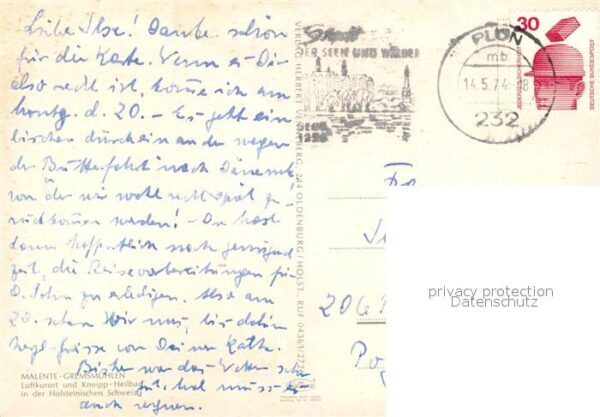 Liebe Ilse! Danke schön
für die Karte. Wenn es Dir
also recht ist, komme ich am
Montg. d. 20. - Es geht ein
bischen durcheinander wegen
der Butterfahrt nach Dänemk,
von der wir wohl recht spät zu-
rückkommen werden! - Du hast
dann hoffentlich noch genügend
zeit, die Reisevorbereitungen für
O. John zu erledigen. Also am
20. sehen wir uns, bis dahin
hrzl. Grüsse von Deiner Käthe.
Bisher war das Wetter sehr
gut, mal muss es
auch regnen.
MALENTE-GREMSMÜHLEN
Luftkurort und Kneipp-Heilbad
in der Holsteinischen Schweiz
VERLAG HERBERT 244 OLDENBURG/HOLST., RUF 04361/272
Stadt
DER SEEN UND WÄLDER
SEIT
1236
PLÖN
mb
14.5.74-18
232
30
JEDERZEIT SICHERHEIT
DEUTSCHE BUNDESPOST
206
privacy protection
Datenschutz